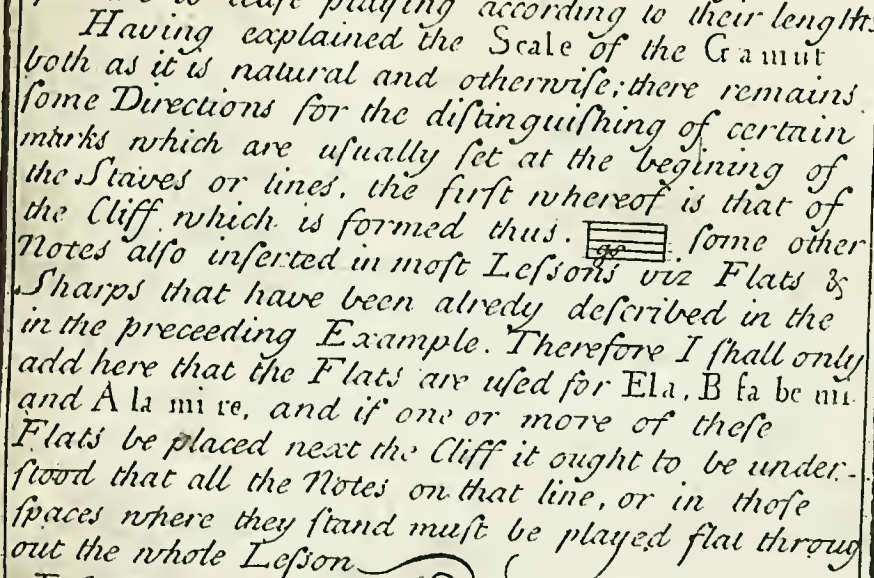 to cease playing according to their lengths
Having explained the Scale of the Gamut
both as it is natural and otherwiſe; there remains
ſome Directions for the diſtinguiſhing of certain
marks which are uſually ſet at the begining of
the Staves or lines, the firſt whereof is that of
the Cliff which is formed thus. ſome other
Notes alſo inſerted in moſt Leſsons viz Flats &
Sharps that have been alredy deſcribed in the
in the preceeding Example. Therefore I ſhall only
add here that the Flats are uſed for Ela, B fa be mi
and A la mi re, and if one or more of theſe
Flats be placed next the Cliff it ought to be under-
ſtood that all the Notes on that line, or in thoſe
ſpaces where they ſtand muſt be played flat throug
out the whole Leſson